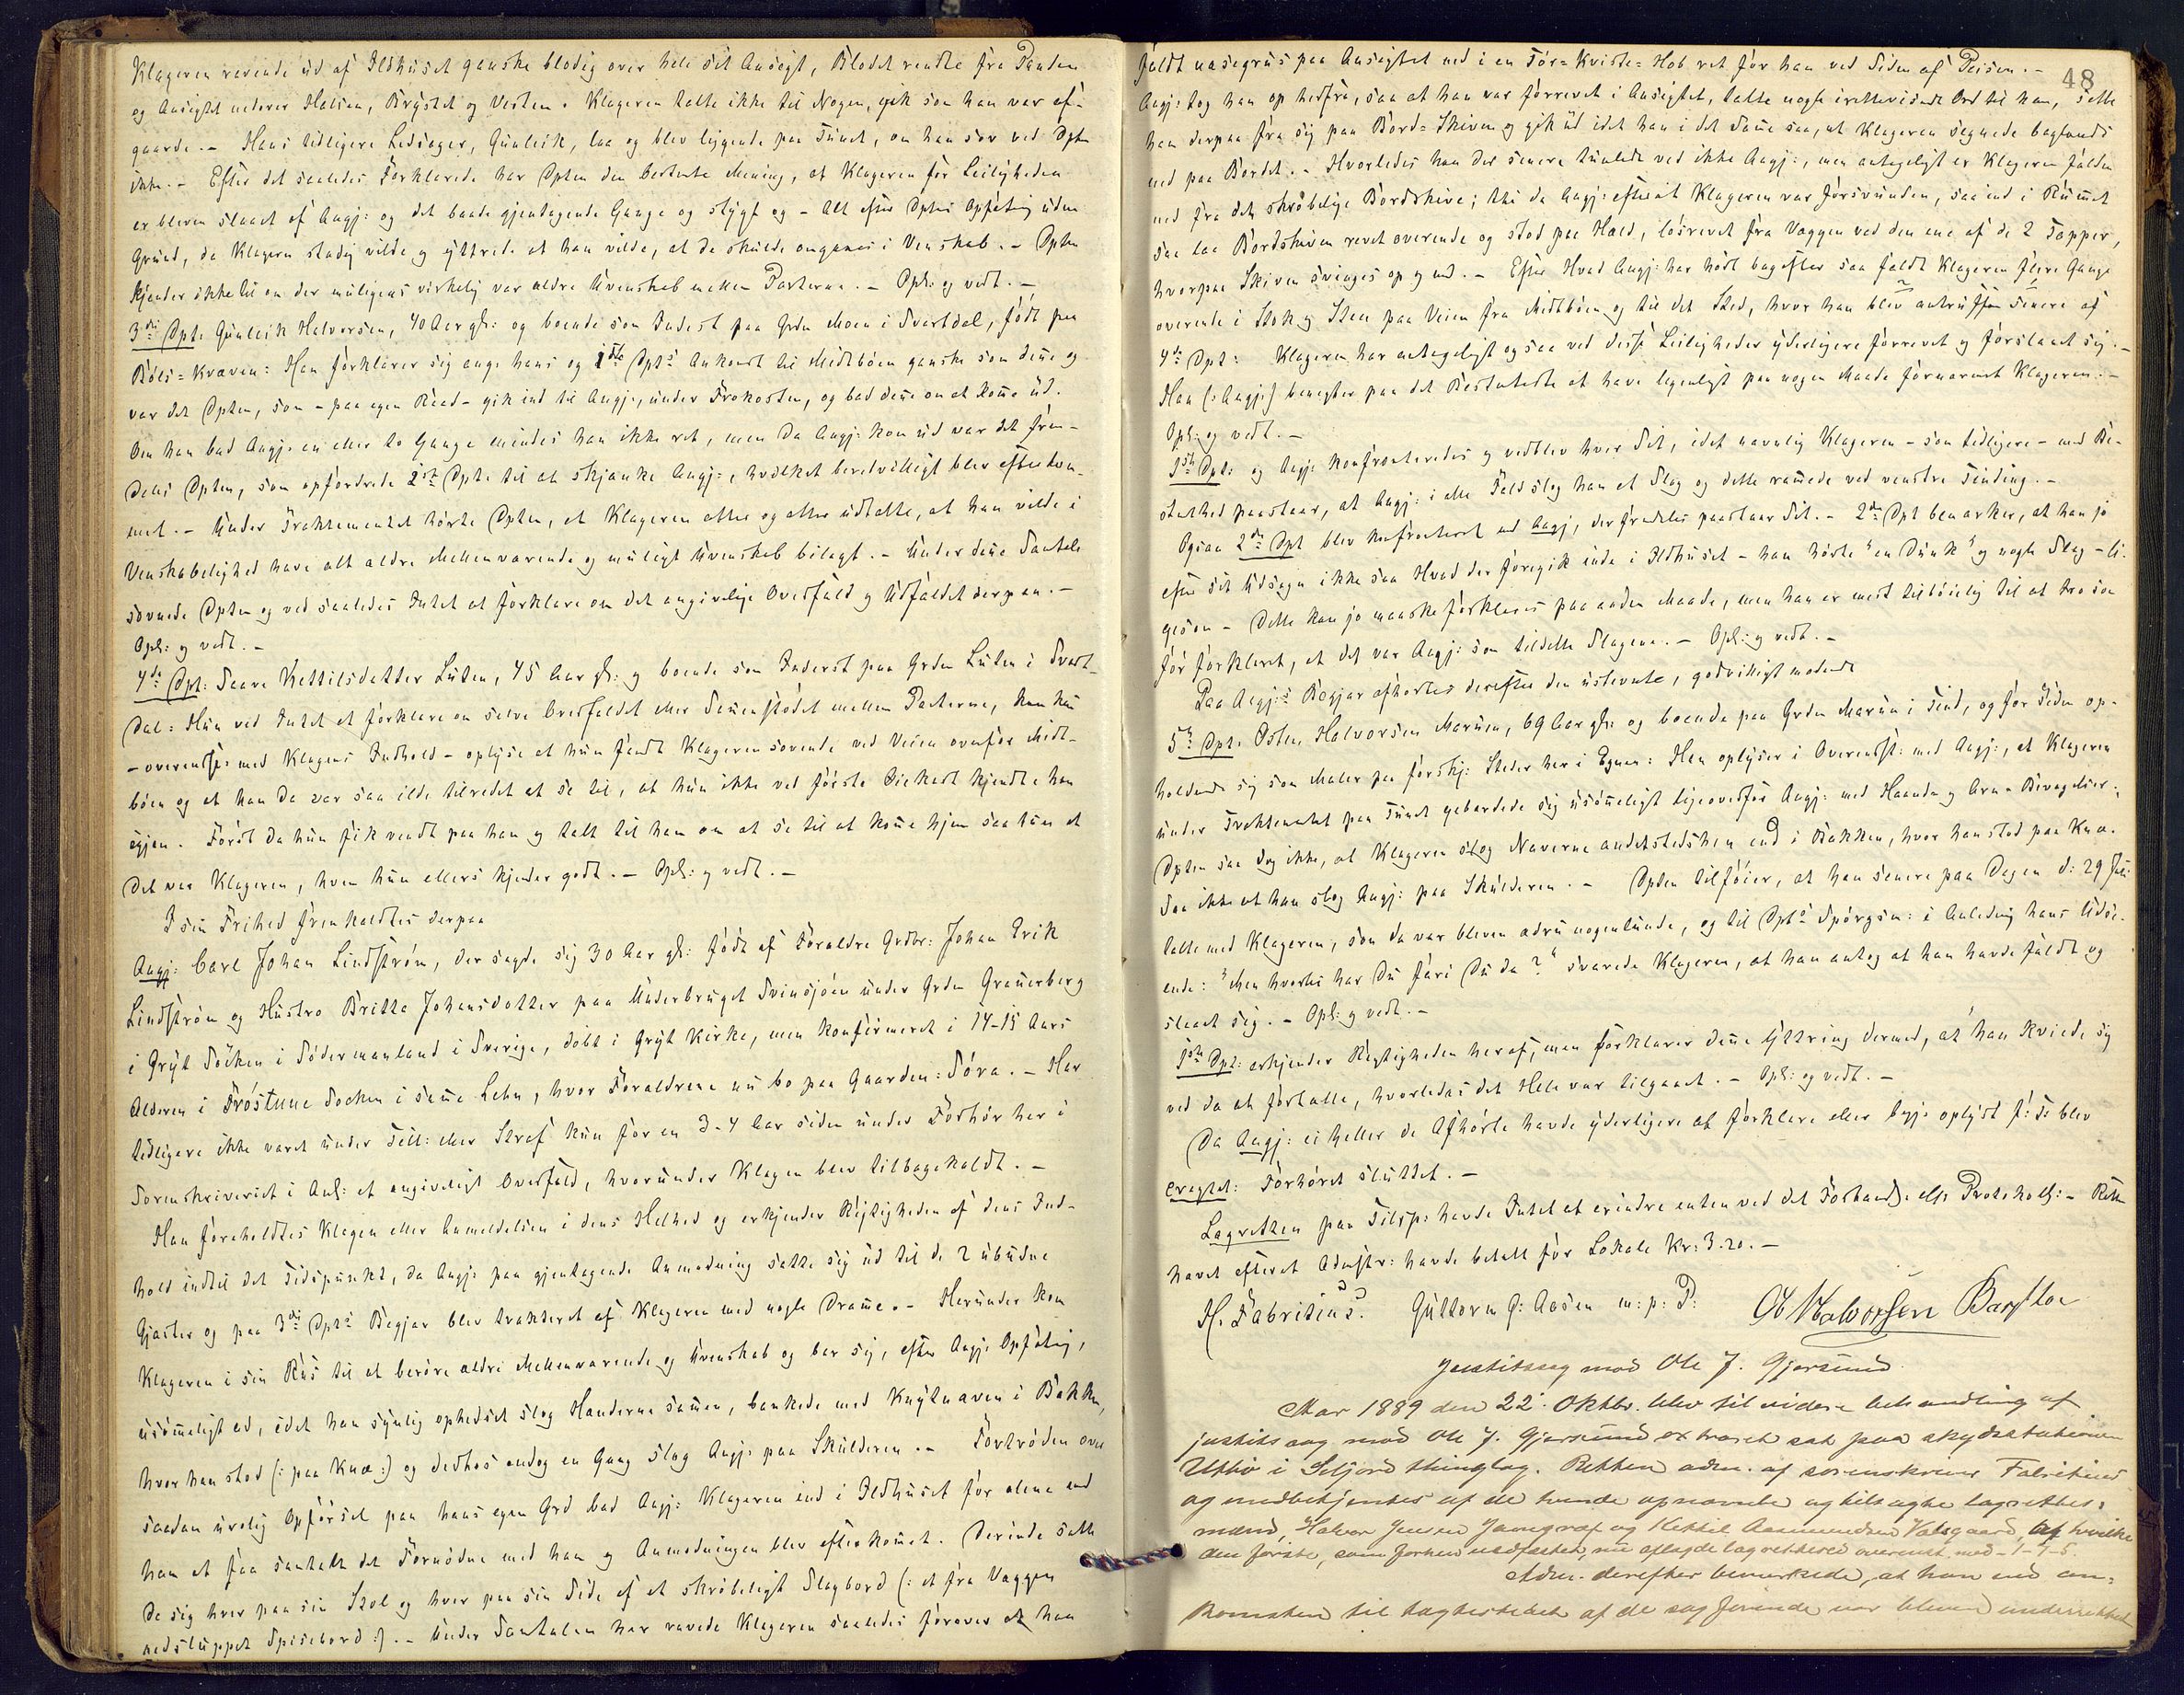 Klageren ravende ud af Ildhuset ganske blodig over hele sit Ansigt, Blodet rendte fra Panden
og Ansigtet nedover Halsen, Brystet og Vesten. Klageren talte ikke til Nogen, gik som han var af-
gaarde. – Hans tidligere Ledsager, Gunleik, laa og blev liggende paa Tunet, om han sov ved Dptn
ikke. – Efter det saaledes Forklarede har Dpten den bestemte Mening, at Klageren før Leiligheden
er bleven slaaet af Angj: og det baade gjentagende Gange og stygt og – Alt efter Dptns Opfatng uden
Grund, da Klageren stadig vilde og yttrede at han vilde, at de skulde omgaaes i Venskab. – Dpten
kjender ikke til om der muligens virkelig var ældre Uvenskab mellem Parterne. – Opl: og vedt. –
3die Dpt: Gunleik Halvorsen, 40 Aar gl: og boende som Inderst paa Grdn Moen i Svartdal, født paa
Bøls-Kræven: Han forklarer sig ang: hans og 1ste Dpts Ankomst til Midtbøen ganske som denne og
var det Dpten, som – paa egen Raad – gik ind til Angj:, under Frokosten, og bad denne om at komme ud.
Om han bad Angj: en eller to Gange mindes han ikke ret, men da Angj: kom ud var det frem-
deles Dpten, som opfordrede 2den Dpt: til at skjænke Angj:, hvilket beredvilligt blev efterkom-
met. – Under Traktementet hørte Dpten, at Klageren atter og atter udtalte, at han vilde i
Venskabelighed have alt ældre Mellemværende og muligt Uvenskab bilagt. – Under denne Samtale
sovnede Dpten og ved saaledes Intet at forklare om det angivelige Overfald og Udfaldet derpaa. –
Opl: og vedt. –
4de Dpt: Saave Kettilsdatter Luten, 45 Aar gl: og boende som Inderst paa Grdn Luten i Svart-
dal: Hun ved Intet at forklare om selve Overfaldet eller Sammenstødet mellem Parterne, kan kun
– overensst: med Klagens Indhold – oplyse at hun fandt Klageren sovende ved Veien ovenfor Midt-
bøen og at han da var saa ilde tilredet at se til, at hun ikke ved første Øiekast kjendte ham
igjen. Først da hun fik vendt paa ham og talt til ham om at se til at komme hjem saa hun at
det var Klageren, hvem hun ellers kjender godt. – Opl: og vedt. –
I sin Frihed fremkaldtes derpaa
Angj: Carl Johan Lindstrøm, der sagde sig 30 Aar gl: født af Forældre Grdbr: Johan Erik
Lindstrøm og Hustro Britta Johansdotter paa Underbruget Svinsjøen under Grdn Grauerberg
i Gryt Socken i Södermanland i Sverige, døbt i Gryt Kirke, men konfirmeret i 14–15 Aars
Alderen i Frøstuna Socken i samme Lehn, hvor Forældrene nu bo paa Gaarden: Söra. – Har
tidligere ikke været under Till: eller Straf kun for en 3–4 Aar siden under Forhør her i
Sorenskriveriet i Anl: et angiveligt Overfald, hvorunder Klagen blev tilbagekaldt. –
Han foreholdtes Klagen eller Anmeldelsen i dens Helhed og erkjender Rigtigheden af dens Ind-
hold indtil det Tidspunkt, da Angj: paa gjentagende Anmodning satte sig ud til de 2 ubudne
Gjæster og paa 3die Dpts Begjær blev trakteret af Klageren med nogle Dramme. – Herunder kom
Klageren i sin Rus til at berøre ældre Mellemværende og Uvenskab og bar sig, efter Angj: Opfatng,
usømmeligt ad, idet han synlig ophedset slog Hænderne sammen, bankede med Knytnæven i Bakken,
hvor han stod (: paa Knæ:) og desthos endog en Gang slog Angj: paa Skulderen. – Fortrøden over
saadan urolig Opførsel paa hans egen Grd bad Angj: Klageren ind i Ildhuset for alene med
ham at faa samtalt det Fornødne med ham og Anmodningen blev efterkommet. Derinde satte
de sig hver paa sin Stol og hver paa sin Side af et skrøbeligt Slagbord (: et fra Væggen
nedsluppet Spisebord:). – Under Samtalen her ravede Klageren saaledes forover at han
48
faldt næsegrus paa Ansigtet ned i en Tør-Kviste-Hob ret før han ved Siden af Peisen. –
Angj: tog ham op herfra, saa at han var forrevet i Ansigtet, talte nogle irettevisende Ord til ham, satte
ham derpaa fra sig paa Bord-Skiven og gik ud idet han i det Samme saa, at Klageren segnede baglænds
ned paa Bordet. – Hvorledes han der senere tumlede ved ikke Angj:, men antageligt er Klageren falden
ned fra den skrøbelige Bordskive; thi da Angj: efterat Klageren var forsvunden, saa ind i Rummet
saa laa Bordskiven revet overende og stod paa Hæld, løsrevet fra Væggen ved den ene af de 2 Tapper,
hvorpaa Skiven svinges op og ned. – Efter Hvad Angj: har hørt bagefter saa faldt Klageren flere Gange
overende i Stok og Sten paa Veien fra Midtbøen og til det Sted, hvor han blev antruffen senere af
4de Dpt: Klageren har antageligt ogsaa ved disse Leiligheder yderligere forrevet og forslaaet sig. –
Han (: Angj:) benegter paa det Bestemteste at have legemligt paa nogen Maade fornærmet Klageren. –
Opl: og vedt. –
1ste Dpt: og Angj: konfronteredes og vedblev hver Sit, idet navnlig Klageren – som tidligere – med Be-
stemthed paastaar, at Angj: i alle Fald slog ham et Slag og dette rammede ved venstre Tinding. –
Ogsaa 2den Dpt blev konfronteret med Angj:, der fremdeles paastaar Sit. – 2den Dpt bemærker, at han jo
efter sit Udsagn ikke saa Hvad der foregik inde i Ildhuset – han hørte "en Dunk" og nogle Slag – li-
gesom – Dette kan jo maaske forklares paa anden Maade, men han er mest tilbøielig til at tro som
før forklaret, at det var Angj: som tildelte Slagene. – Opl: og vedt. –
Paa Angj:s Begjær afhørtes derefter den ustevnte, godvilligt mødende
5te Dpt: Østen Halvorsen Marum, 69 Aar gl: og boende paa Grdn Marum i Tind, og for Tiden op-
holdende sig som Maler paa forskj: Steder her i Egnen: Han oplyser i Overensst: med Angj:, at Klageren
under Traktementet paa Tunet gebærdede sig usømmeligt ligeoverfor Angj: med Haande og Arm-Bevægelser;
Dpten saa dog ikke, at Klageren slog Næverne andetstedshen end i Bakken, hvor han stod paa Knæ.
Saa ikke at han slog Angj: paa Skulderen. – Dpten tilføier, at han senere paa Dagen d: 29 Juli
talte med Klageren, som da var bleven ædru nogenlunde, og til Dpts Spørgsm: i Anledng hans Udse-
ende: "Men hvorhi har Du fari Du da?" svarede Klageren, at han antog at han havde faldt og
slaaet sig. – Opl: og vedt. –
1ste Dpt: erkjender Rigtigheden heraf, men forklarer denne Yttring dermed, at han kviede sig
ved da at fortælle, hvorledes det Hele var tilgaaet. – Opl: og vedt. –
Da Angj: ei heller de Afhørte havde yderligere at forklare eller begj: oplyst f: T: blev
eragtet: Forhøret sluttet. –
Lagretten paa Tilsp: havde Intet at erindre enten ved det Forhand: ell: Protokoll: – Retten
hævet efterat Admstr: havde betalt for Lokale Kr: 3.20. –
H. Fabritius. Guttorm G: Aasen m: p: P: O Halvorsen Bargstøe
Justitssag mod Ole J. Gjersund.
Aar 1889 den 22. Oktbr. blev til videre behandling af
justitssag mod Ole J. Gjersund extraret sat paa skydsstationen
Utbø i Seljord thinglag. Retten adm. af sorenskriver Fabritius
og medbetjentes af de tvende opnævnte og tilsagte lagrettes-
mænd, Halvor Jensen Jamgraf og Kettil Aasmundsen Vatsgaard, af hvilke
den første, som forhen uedfæstet, nu aflagde lagrettesed overenst. med – 1–7–5.
Adm. derefter bemærkede, at han ved an-
komsten til tægtestedet af de sagførende var bleven underrettet